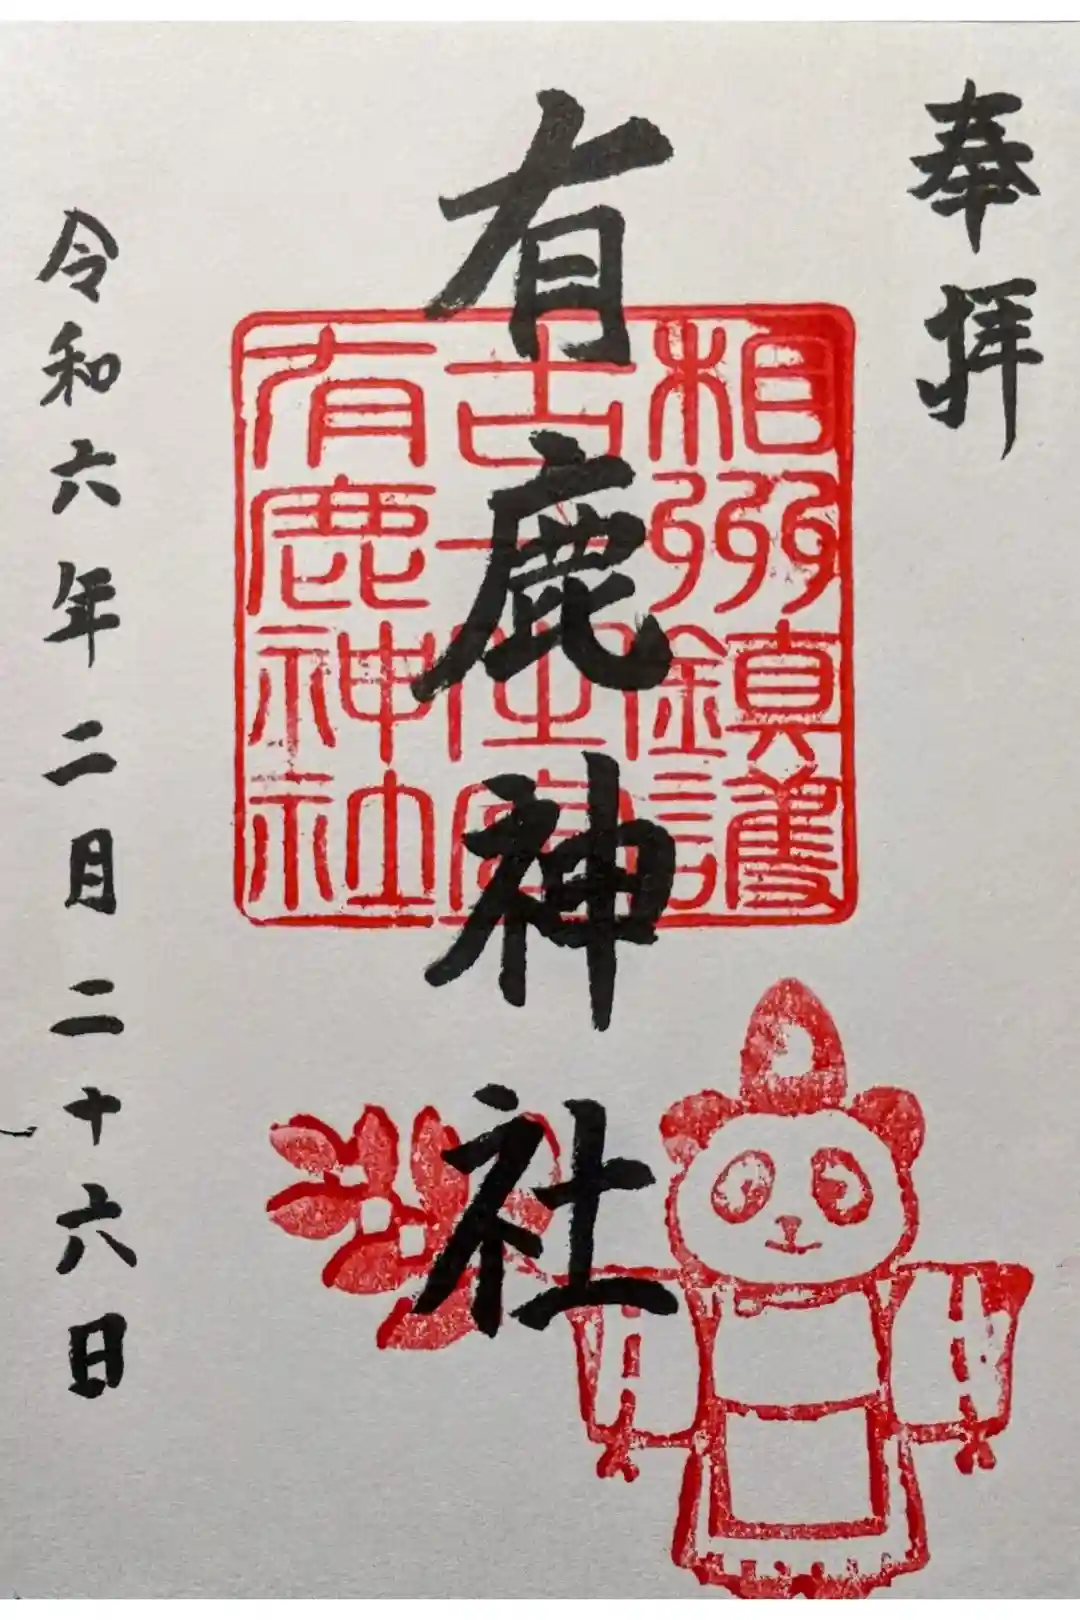 奉拝
有鹿神社
相州鎮護
古大住宮
有鹿神社
令和六年二月二十六日